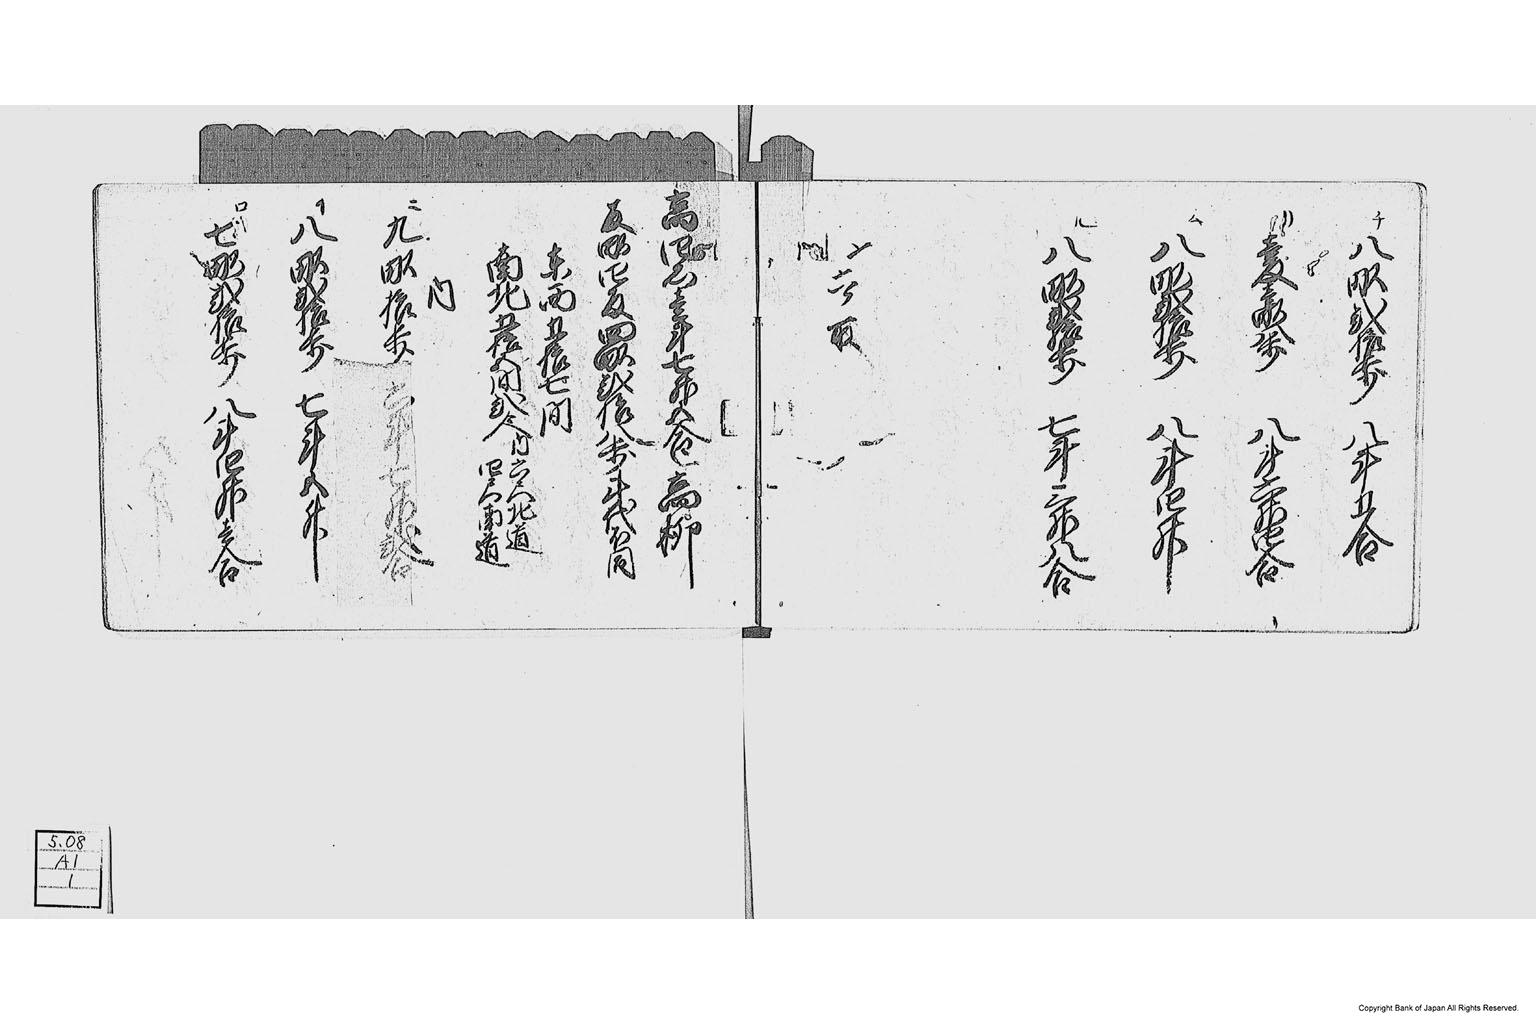 チ
八畝弐拾歩 八斗五合
リ
壱反壱畝歩 八斗六升四合
ム
八畝弐拾歩 八斗四升
ル
八畝弐拾歩 七斗三升八合
高四石壱斗七升五合 高柳
反畝四反四畝弐拾八歩 年代不同
東西五拾七間
南北五拾五間弐尺 内六尺北道
四尺南道
内
ニ
九畝拾歩 六斗七升弐合
イ
八畝弐拾歩 七斗五升
ロ
七畝弐拾歩 八斗四升壱合
5.08
A1
1
Copyright Bank of Japan All Rights Reserved.